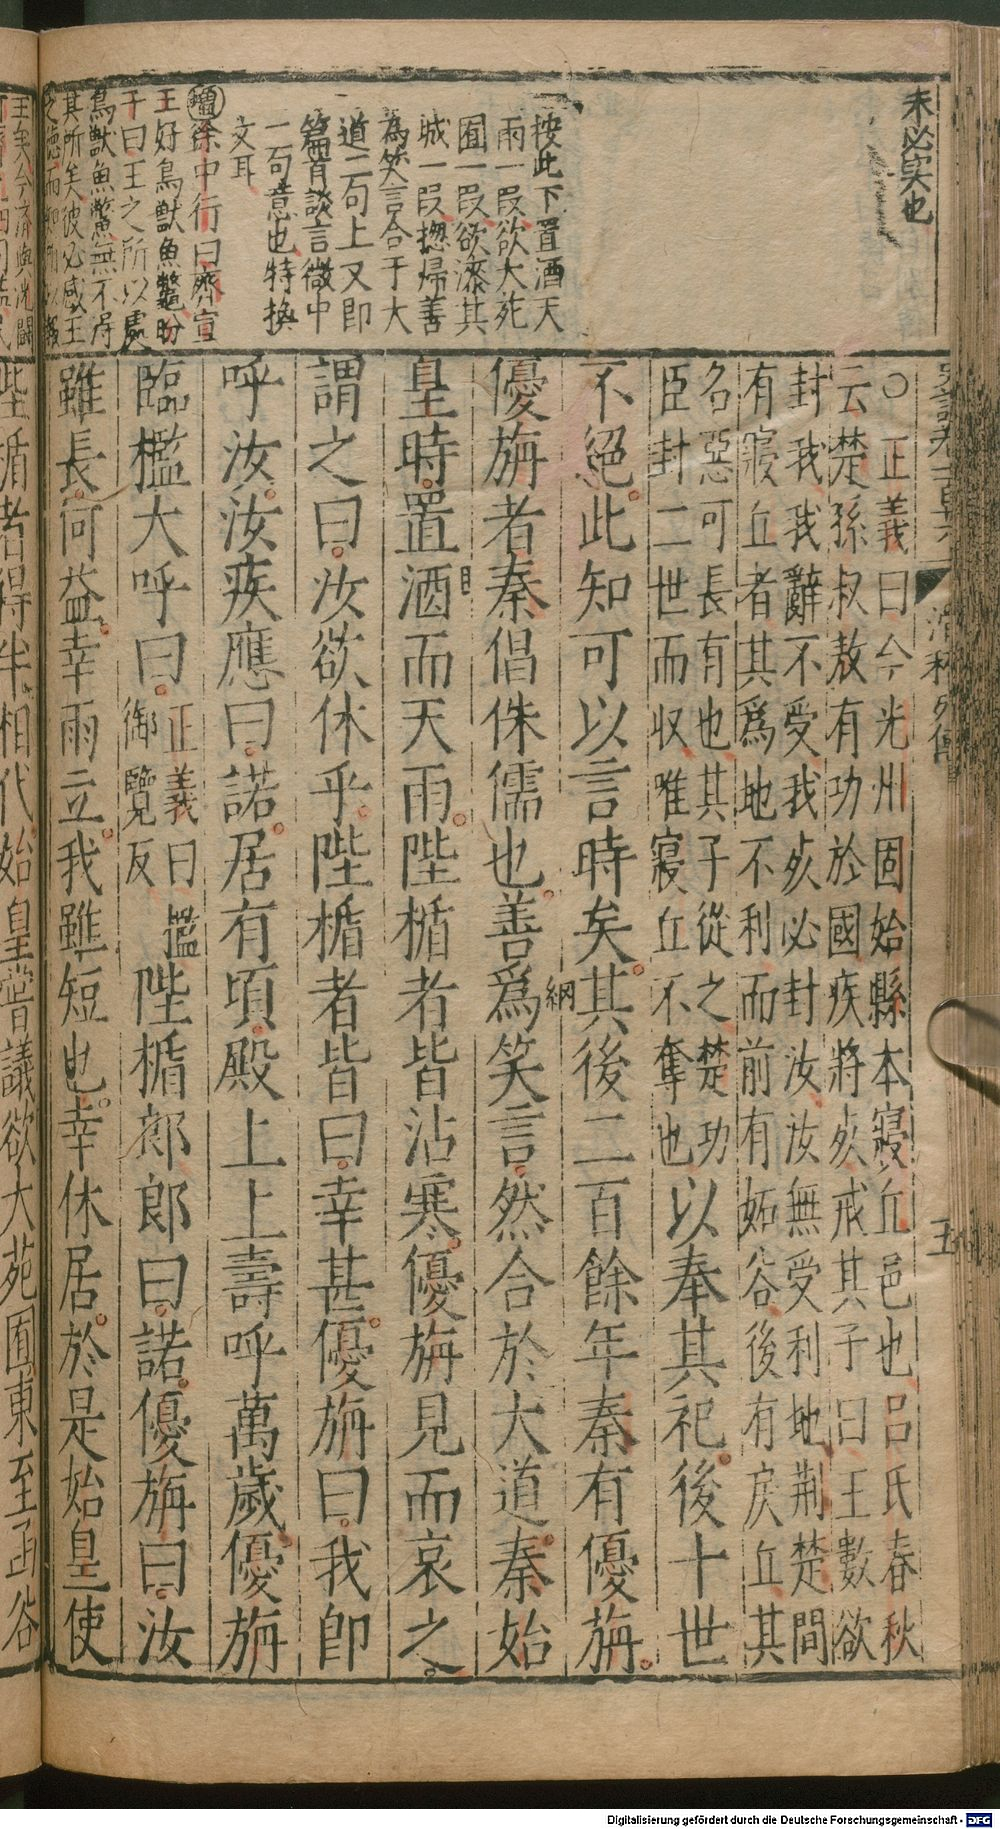 未必实也
按此下置酒天
雨一段欲大苑
囿一段欲漆其
城一段揔歸善
為笑言合于大
道二句上又即
篇首談言微中
一句意也特換
文耳
增徐中行曰齊宣
王好鳥獸魚鼈盼
子曰王之所以處
鳥獸魚鱉無不得
其所矣彼必感王
滑稽列傳
五
○正義曰今光州固始縣本寢丘邑也呂氏春秋
云楚孫叔敖有功於國疾將死戒其子曰王數欲
封我我辭不受我死必封汝汝無受利地荆楚間
有寢丘者其爲地不利而前有妬谷後有戾丘其
名惡可長有也其子從之楚功
臣封二世而收唯寢丘不奪也
以奉其祀後十世
不絕此知可以言時矣其後二百餘年秦有優旃
優旃者秦倡侏儒也善爲笑言然合於大道秦始
綱
皇時置酒而天雨陛楯者皆沾寒優旃見而哀之
目
謂之曰汝欲休乎陛楯者皆曰幸甚優旃曰我即
呼汝汝疾應曰諾居有頃殿上上壽呼萬歲優旃
臨檻大呼曰
正義曰檻
御覽反
陛楯郎郎曰諾優旃曰汝
雖長何益幸雨立我雖短也幸休居於是始皇使
陛楯者得半相代始皇嘗議欲大苑囿東至函谷
Digitalisierung gefördert durch die Deutsche Forschungsgemeinschaft - DFG